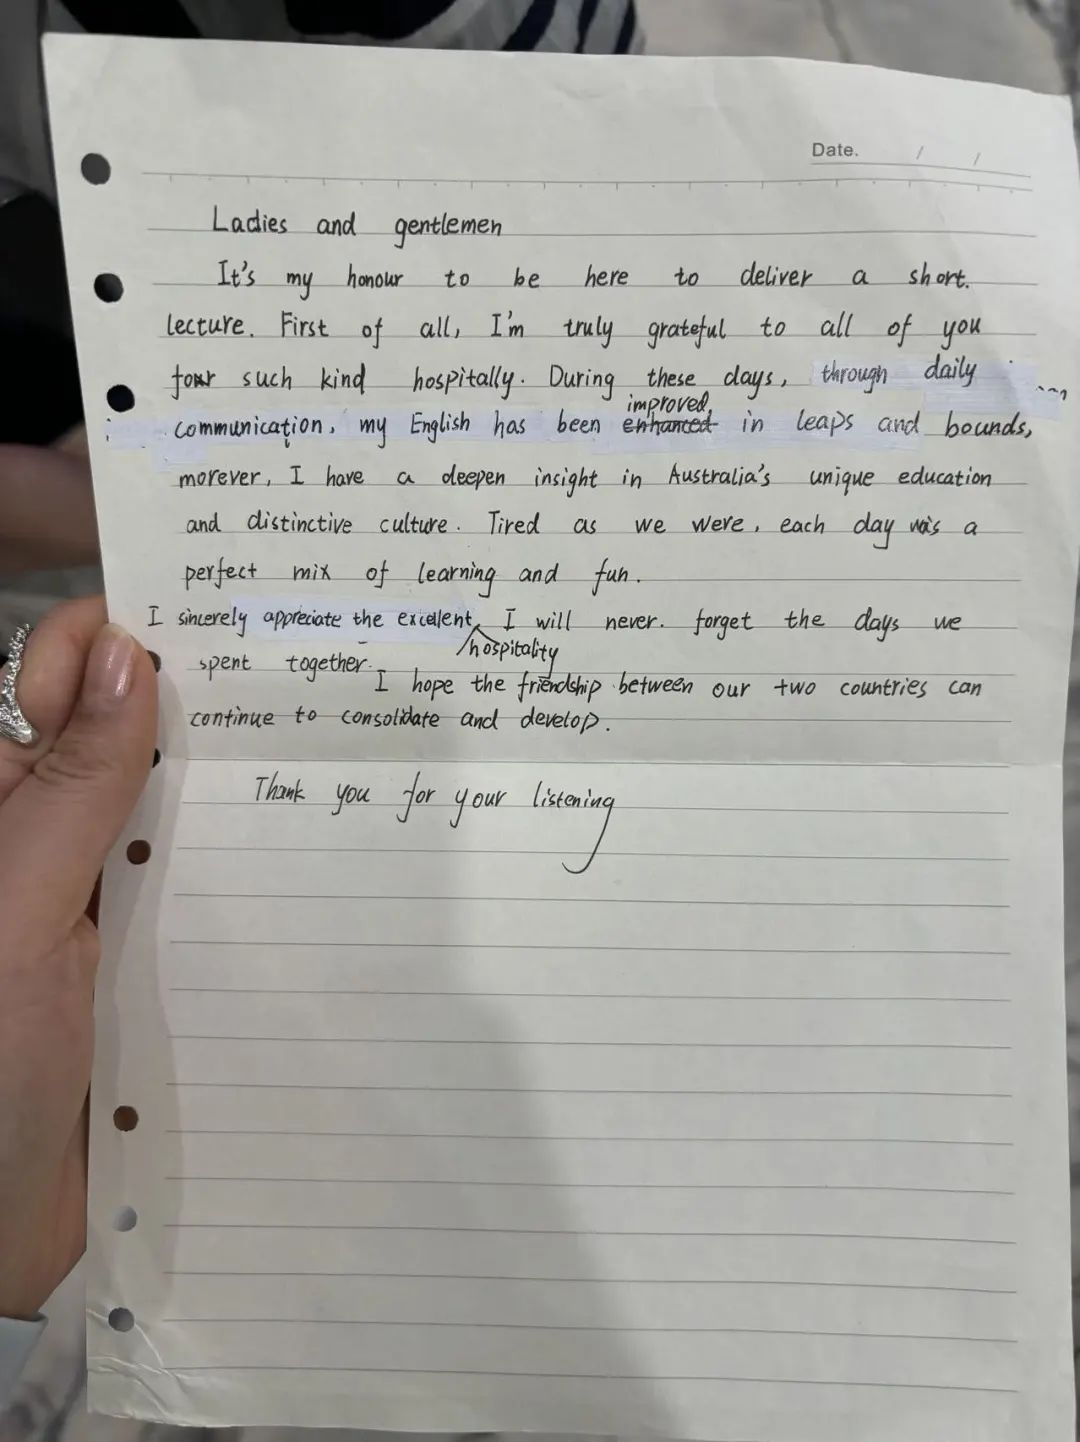 Date. / /
Ladies and gentlemen
It's my honour to be here to deliver a short.
lecture. First of all, I'm truly grateful to all of you
for such kind hospitally. During these days, through daily
communication, my English has been enhanted improved, in leaps and bounds,
morever, I have a deepen insight in Australia's unique education
and distinctive culture. Tired as we were, each day was a
perfect mix of learning and fun.
I sincerely appreciate the excellent hospitality, I will never. forget the days we
spent together.
I hope the friendship between our two countries can
continue to consolidate and develop.
Thank you for your listening